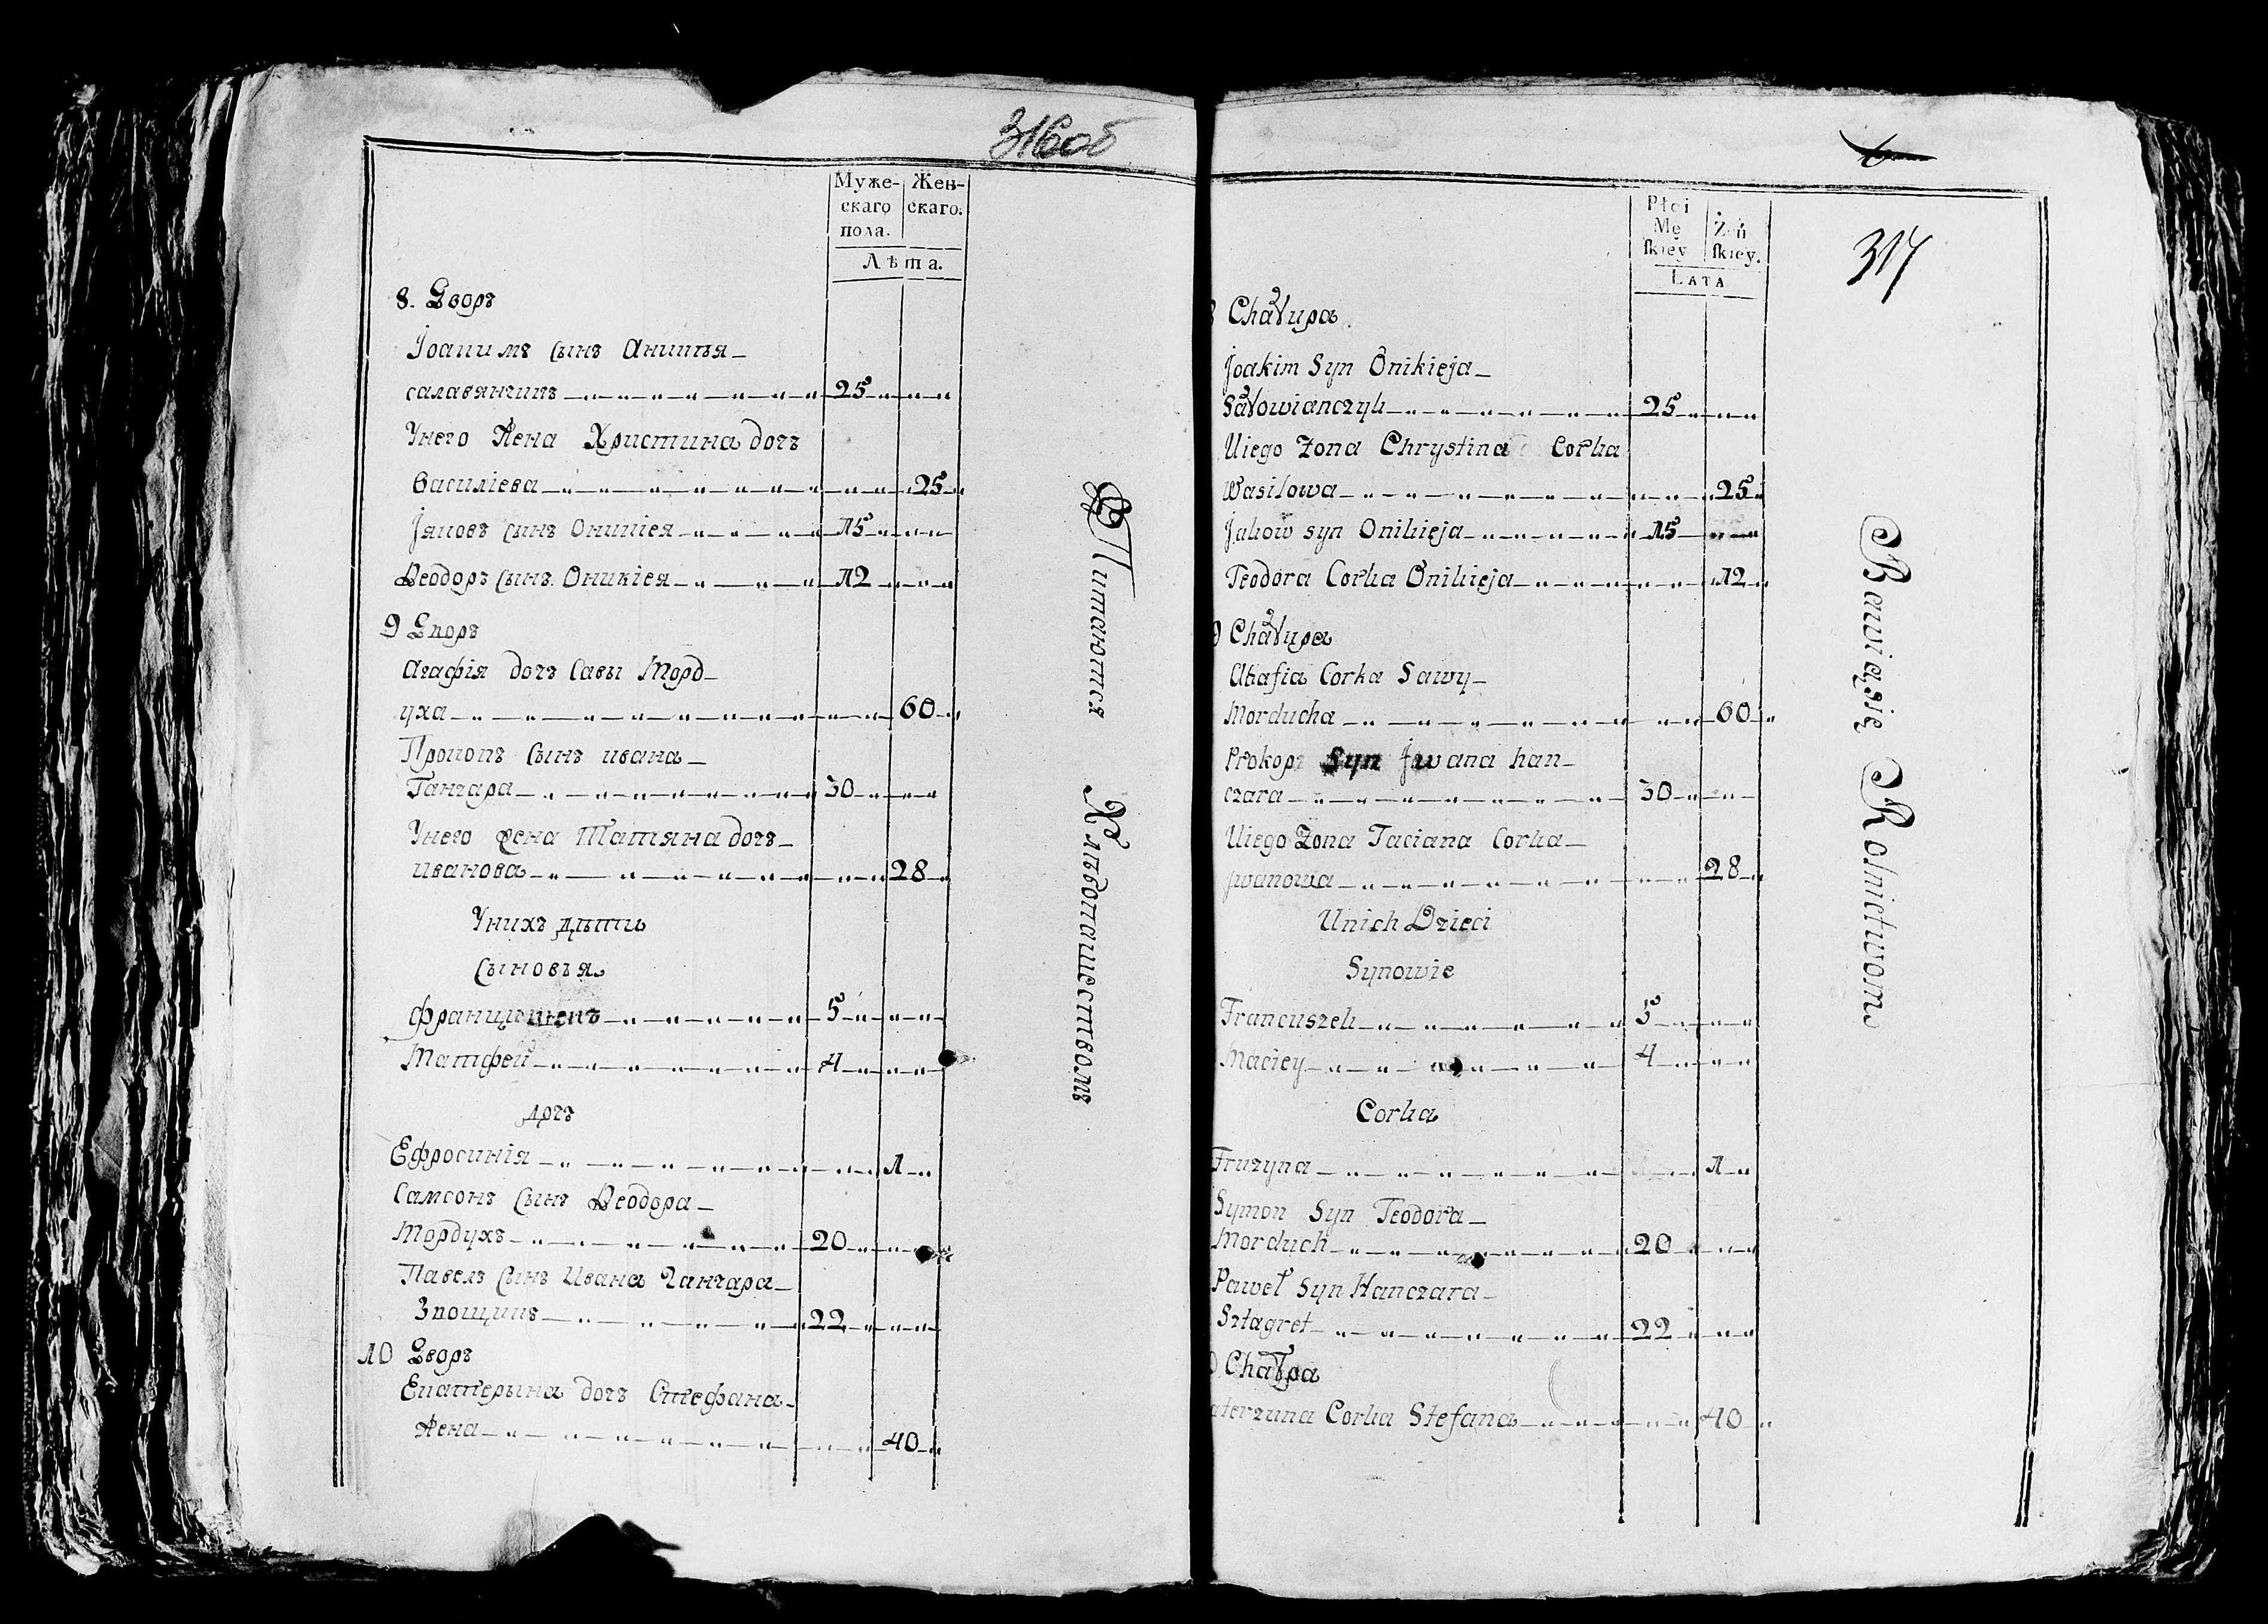 316об
Муже- Жен-
скаго скаго.
пола.
Лѣта.
8. Дворъ
Іоакимъ сынъ Аникѣя
салавянчикъ 25
Унего Жена Христина дочь
василіева 25
Іяковъ сынъ Оникіея 15
Ѳеодоръ сынъ Оникіея 12
9 Дворъ
Агафія дочъ Савы Морд-
уха 60
Прокопъ Сынъ ивана
Ганчара 30
Унего жена Татяна дочъ
иванова 28
Унихъ дѣти
Сыновья
францишекъ 5
Матфей 4
дочъ
Ефросинія 1
Самсонъ Сынъ Ѳеодора
Мордухъ 20
Павелъ Сынъ Ивана Ганчара
22
10 Дворъ
Екатерына дочъ Стефана
Жена 40
Питаются Хлѣбопашествомъ
317
Płci
Mę Żeń
skiey skiey.
LATA
8 Chałupa
Joakim Syn Onikieja
Sałowianczyk 25
Uiego Zona Chrystina Corka
Wasilowa 25
Jakow syn Onikieja 15
Teodora Corka Onikieja 12
9 Chałupa
Ahafia Corka Sawy
Morducha 60
Prokop Syn Jwana han-
czara 30
Uiego Zona Taciana Corka
Jwanowa 28
Unich Dzieci
Synowie
Francuszek 5
Maciey 4
Corka
Fruzyna 1
Symon Syn Teodora
Morduch 20
Paweł Syn Hanczara
Sztagret 22
0 Chałpa
aterzuna Corka Stefana 40
Bawią się Rolnictwom